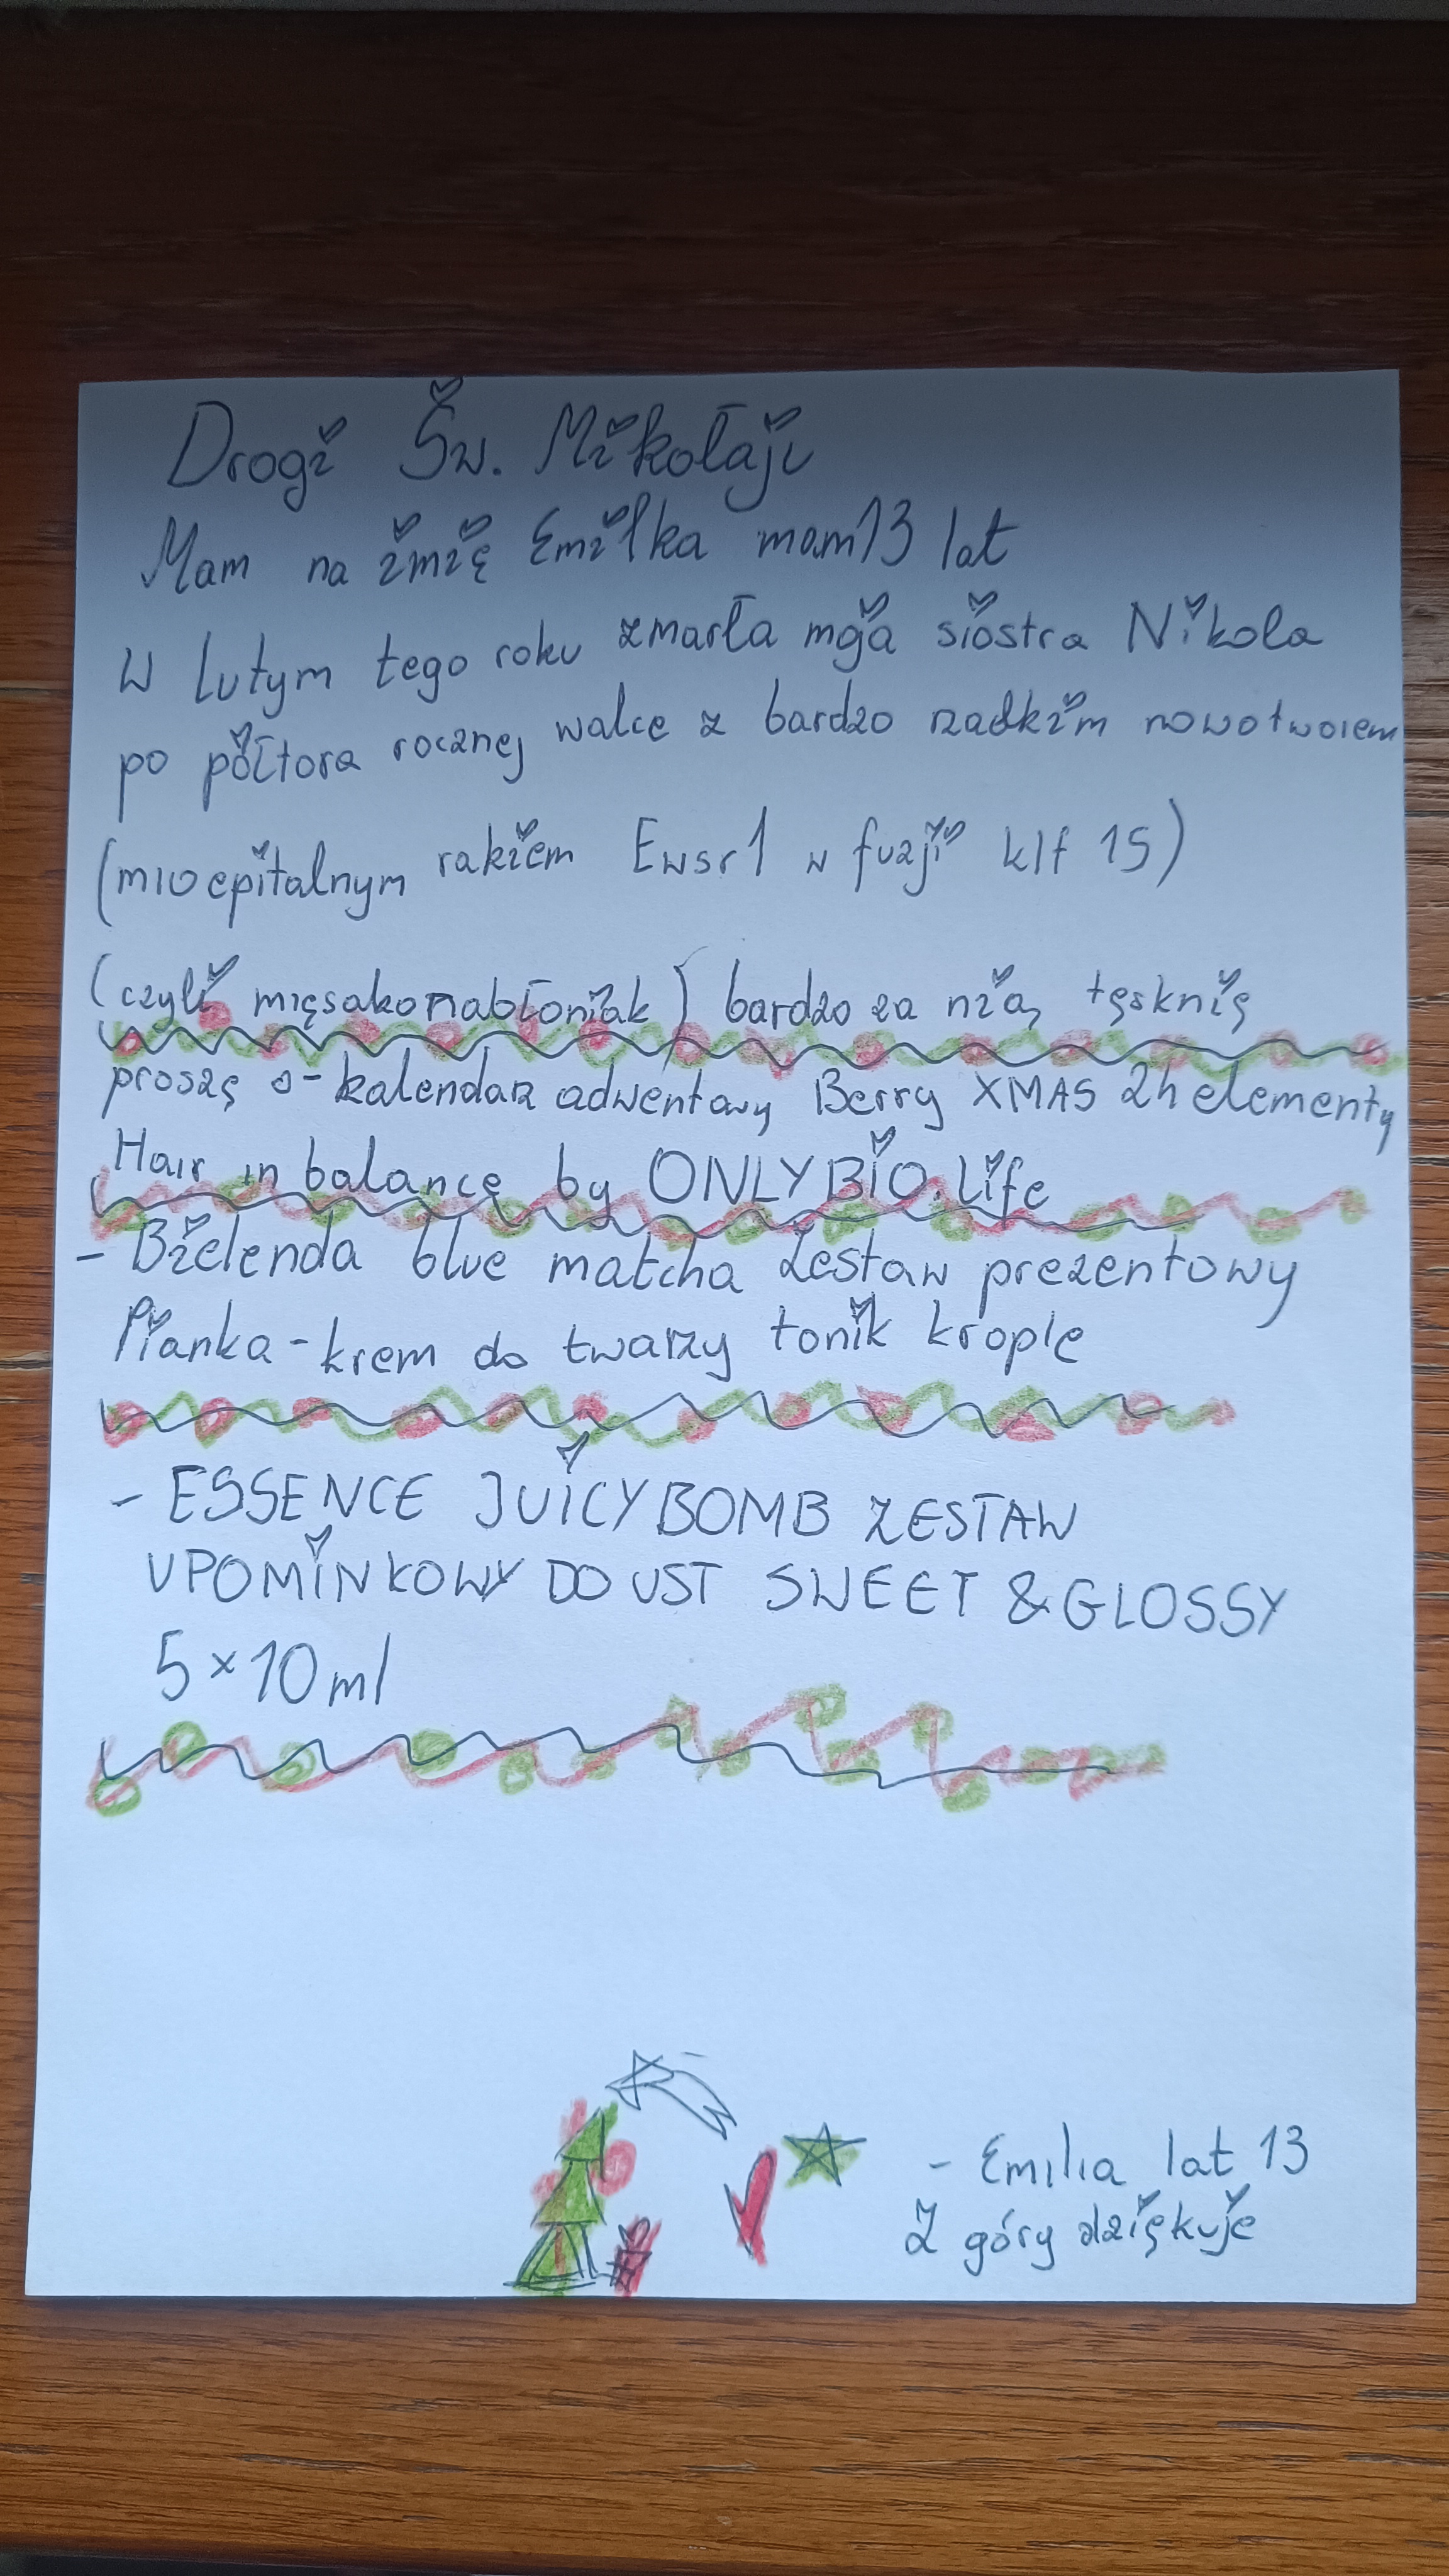 Drogi Św. Mikołaju
Mam na imię Emilka mam 13 lat
W lutym tego roku zmarła moja siostra Nikola
po półtora rocznej walce z bardzo rzadkim nowotworem
(mioepitalnym rakiem Ewsr1 w fuzji klf 15)
(czyli mięsakonabłoniak) bardzo za nią tęsknię
proszę o - kalendarz adwentowy Berry XMAS 24 elementy
Hair in balance by ONLYBIO.life
- Bielenda blue matcha Zestaw prezentowy
Pianka - krem do twarzy tonik krople
- ESSENCE JUICY BOMB ZESTAW
UPOMINKOWY DO UST SWEET & GLOSSY
5 × 10 ml
- Emilia lat 13
Z góry dziękuje